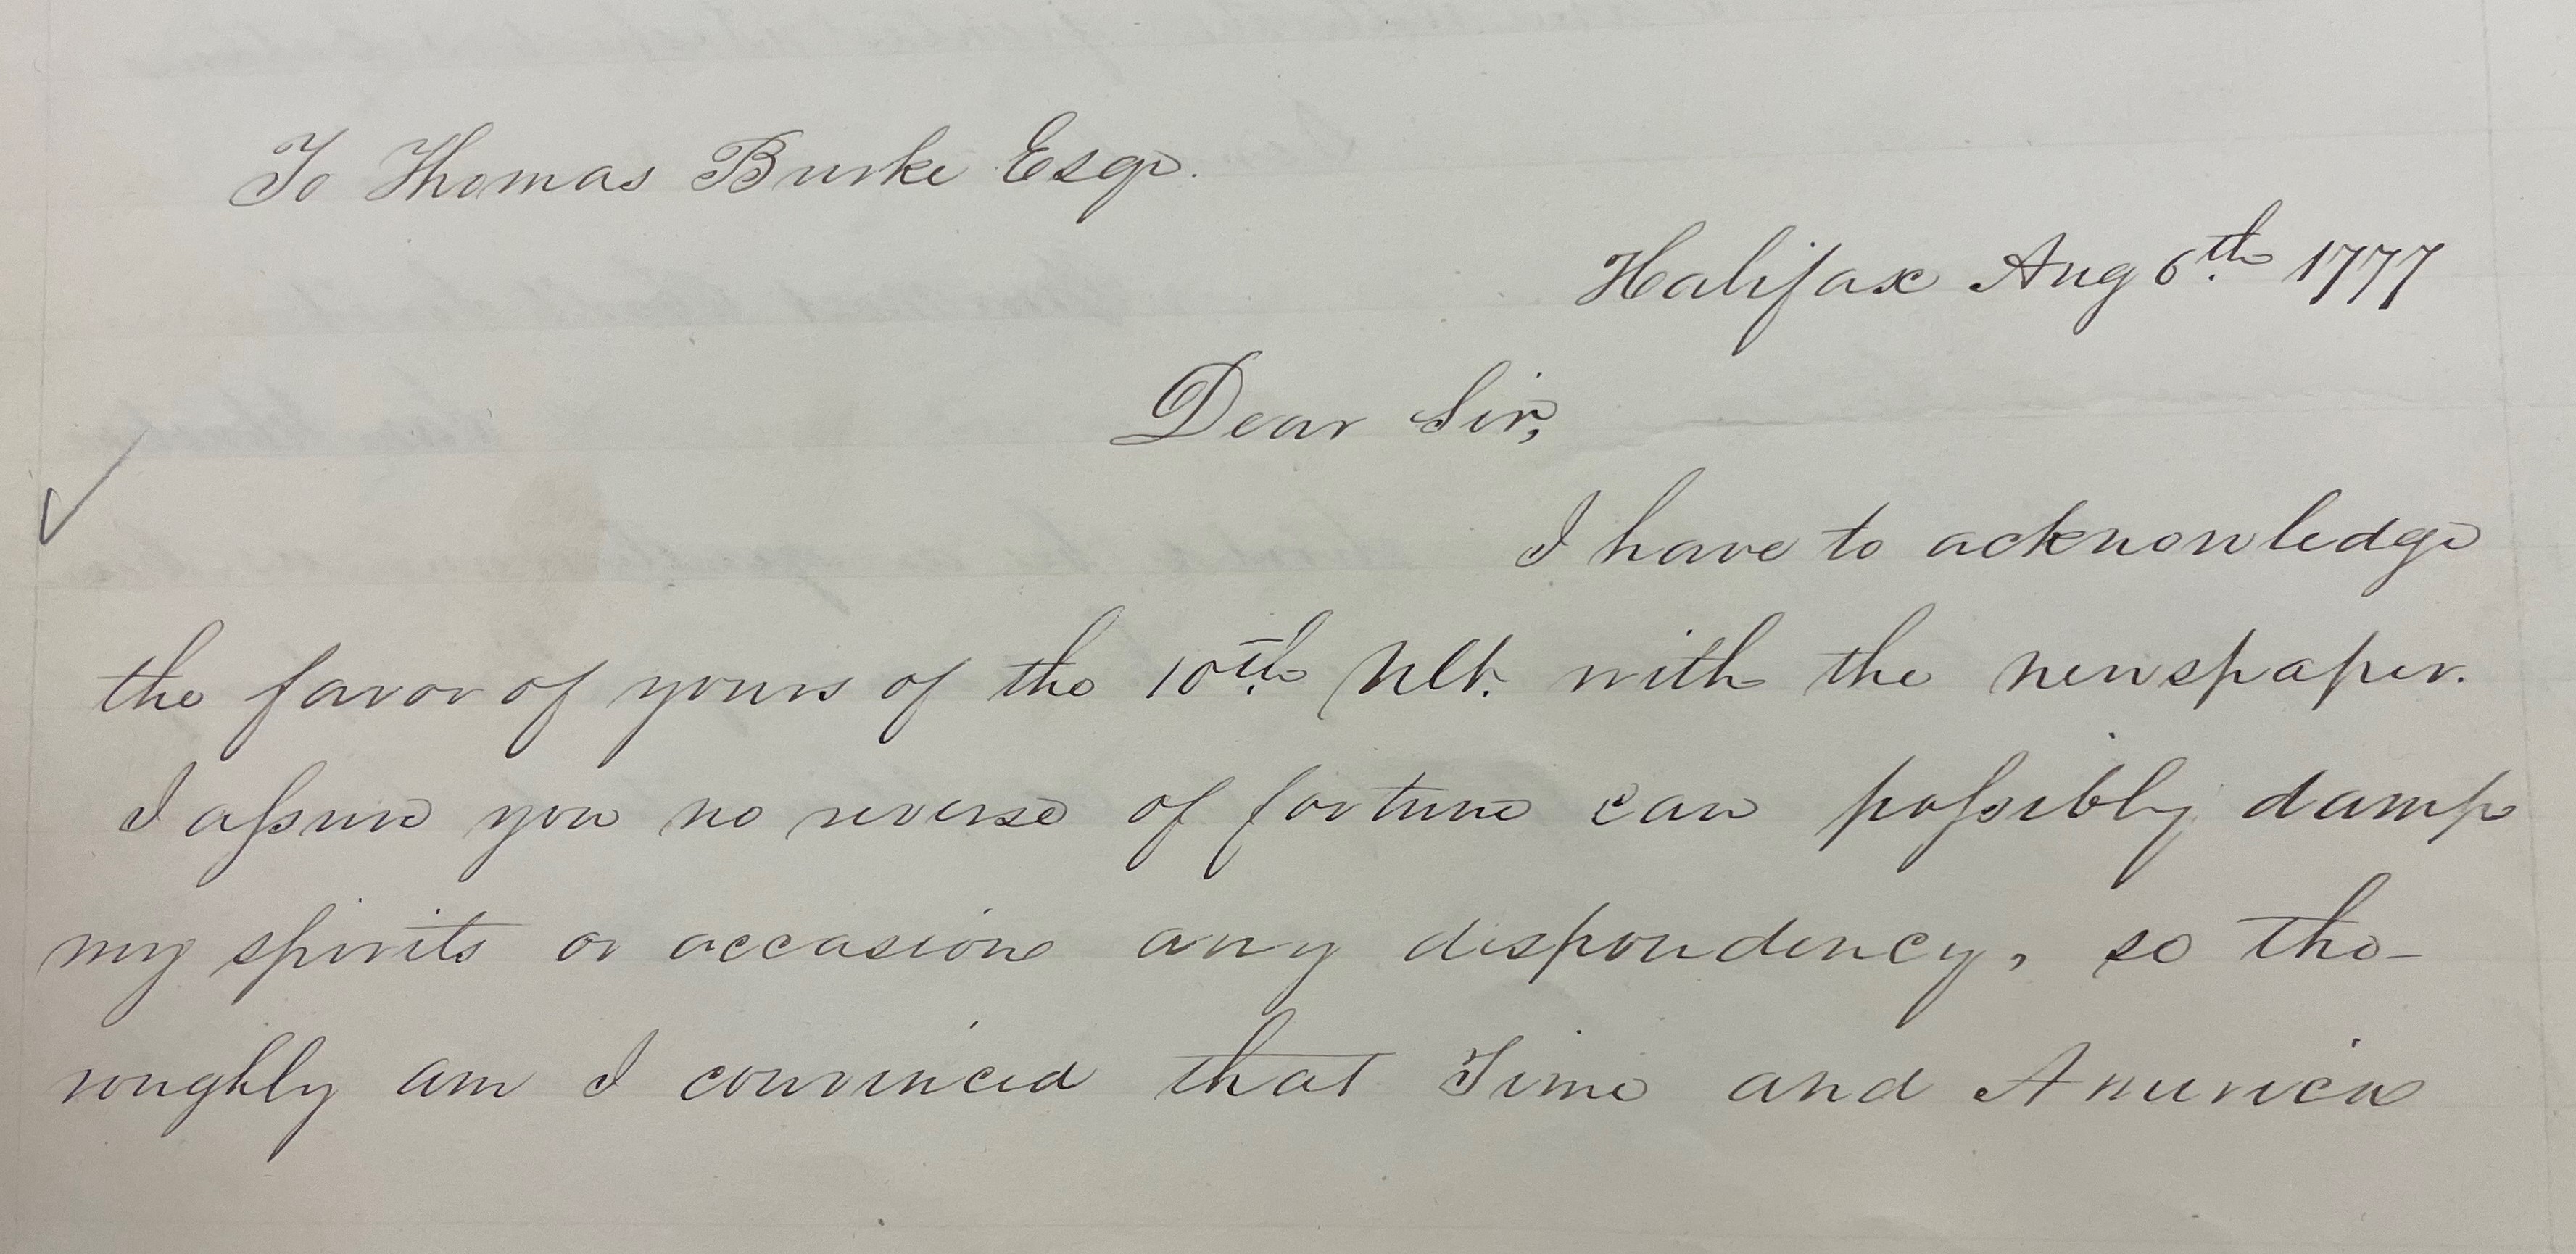 To Thomas Burke Esqr.
Halifax Aug 6th 1777
Dear Sir,
I have to acknowledge
the favor of yours of the 10th Ult. with the newspaper.
I aſsure you no reverse of fortune can poſsibly damp
my spirits or occasion any despondency, so tho-
roughly am I convinced that Time and America